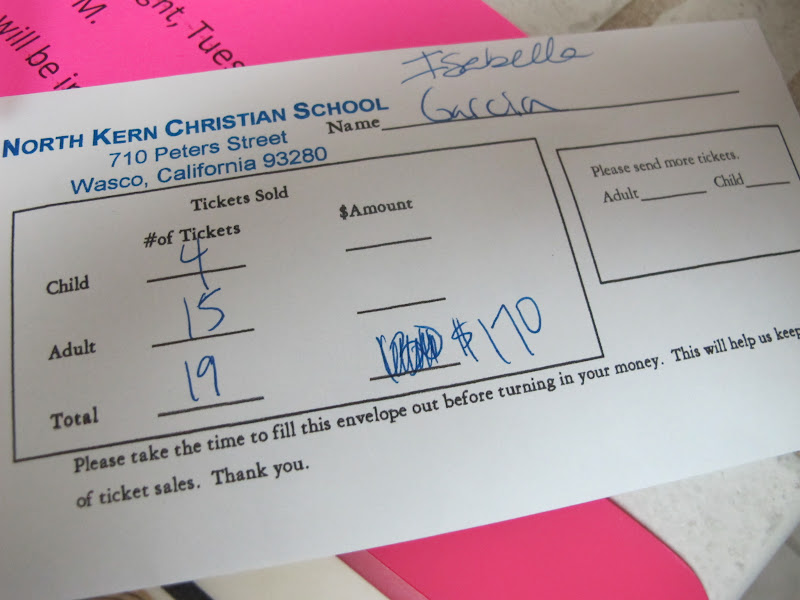 ght, Tues
M.
will be in
Isabella
Garcia
NORTH KERN CHRISTIAN SCHOOL
710 Peters Street
Wasco, California 93280
Name
Tickets Sold
#of Tickets $Amount
Child 4
Adult 15
Total 19 $170
Please send more tickets.
Adult Child
Please take the time to fill this envelope out before turning in your money. This will help us keep
of ticket sales. Thank you.